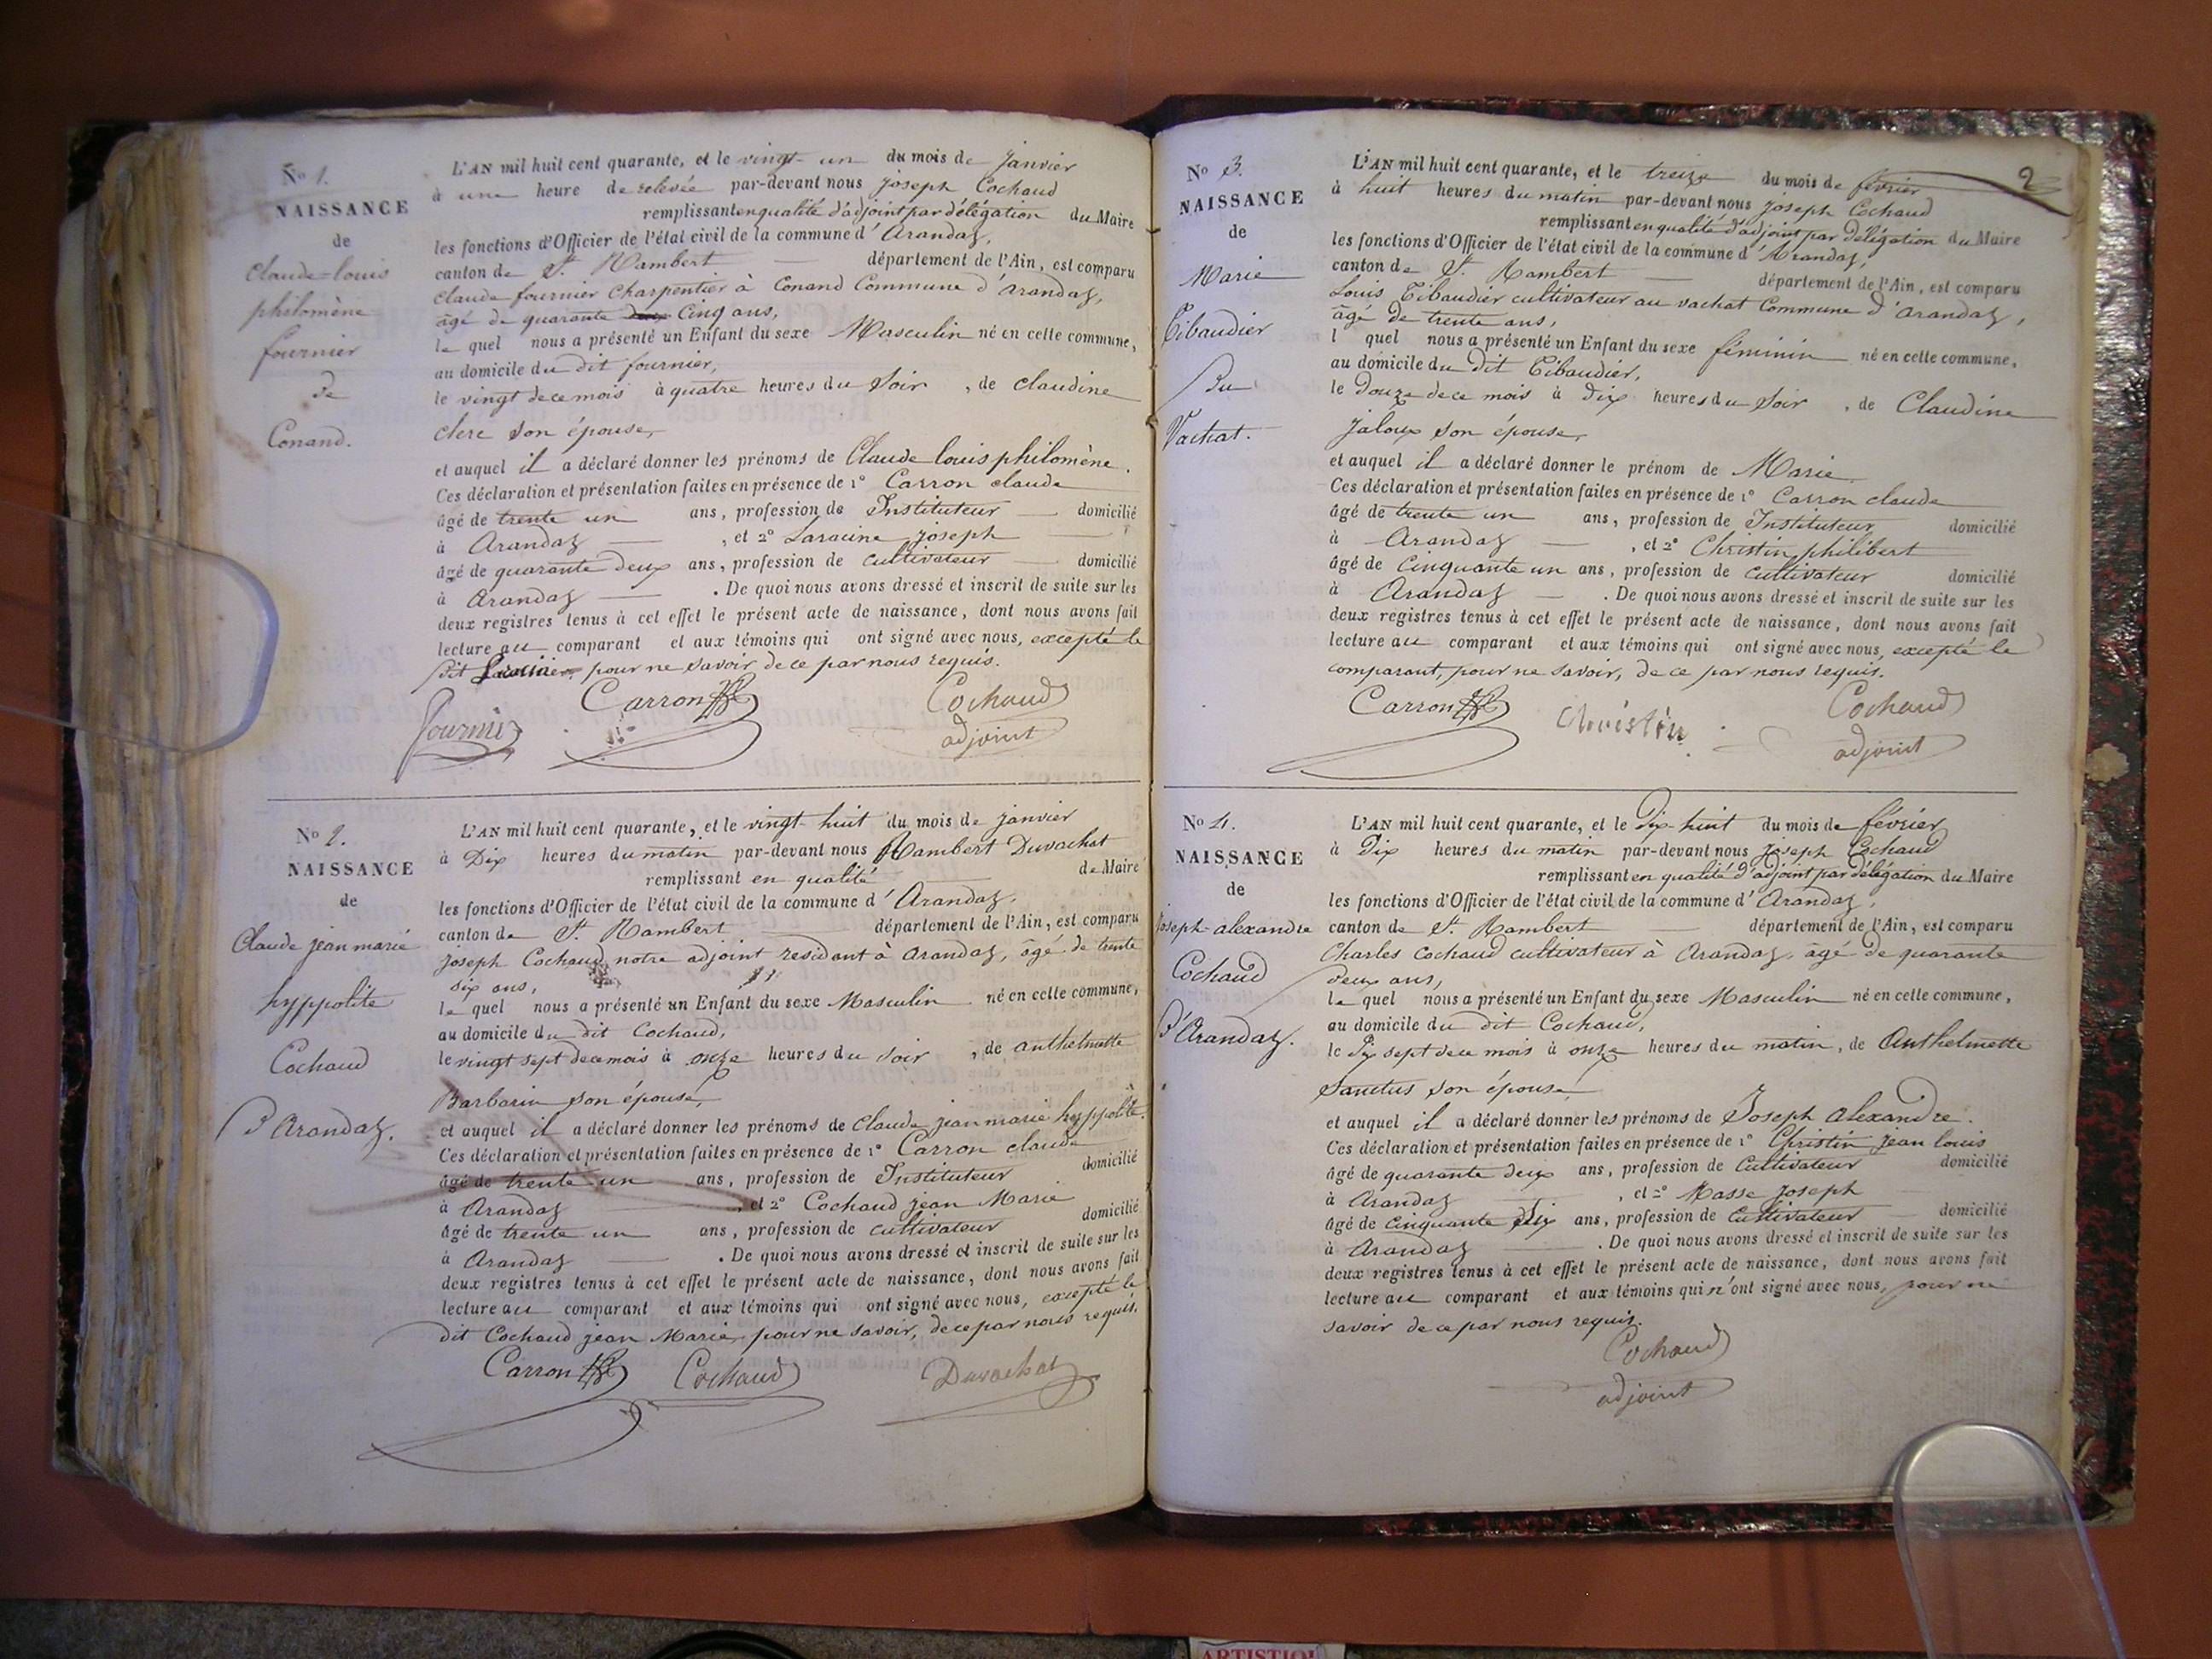 No 1.
NAISSANCE
de
Claude-louis
philomène
fournier
de
Conand.
L'AN mil huit cent quarante, et le vingt-un du mois de janvier
à une heure de relevée par-devant nous joseph Cochaud
remplissant en qualité d'adjoint par délégation du Maire
les fonctions d'Officier de l'état civil de la commune d'Arandaz,
canton de St. Rambert département de l'Ain, est comparu
claude fournier charpentier à Conand Commune d'arandaz,
âgé de quarante Cinq ans,
le quel nous a présenté un Enfant du sexe Masculin né en cette commune,
au domicile du dit fournier,
le vingt de ce mois à quatre heures du soir, de claudine
clerc son épouse,
et auquel il a déclaré donner les prénoms de Claude louis philomène.
Ces déclaration et présentation faites en présence de 1° Carron claude
âgé de trente un ans, profession de Instituteur domicilié
à Arandaz, et 2° Laracine joseph
âgé de quarante deux ans, profession de cultivateur domicilié
à Arandaz. De quoi nous avons dressé et inscrit de suite sur les
deux registres tenus à cet effet le présent acte de naissance, dont nous avons fait
lecture au comparant et aux témoins qui ont signé avec nous, excepté le
dit pour ne savoir, de ce par nous requis.
fournier Carron Cochaud
adjoint
No 2.
NAISSANCE
de
Claude jean marie
hyppolite
Cochaud
d'Arandaz.
L'AN mil huit cent quarante, et le vingt-huit du mois de janvier
à Dix heures du matin par-devant nous Rambert Duvachat
remplissant en qualité de Maire
les fonctions d'Officier de l'état civil de la commune d'Arandaz,
canton de St. Rambert département de l'Ain, est comparu
joseph Cochaud notre adjoint residant à Arandaz, âgé de trente
six ans,
le quel nous a présenté un Enfant du sexe Masculin né en cette commune,
au domicile du dit Cochaud,
le vingt sept de ce mois à onze heures du soir, de anthelmette
Barbarin son épouse,
et auquel il a déclaré donner les prénoms de Claude jean marie hyppolite.
Ces déclaration et présentation faites en présence de 1° Carron claude
âgé de trente un ans, profession de Instituteur domicilié
à Arandaz, et 2° Cochaud jean Marie
âgé de trente un ans, profession de cultivateur domicilié
à Arandaz. De quoi nous avons dressé et inscrit de suite sur les
deux registres tenus à cet effet le présent acte de naissance, dont nous avons fait
lecture au comparant et aux témoins qui ont signé avec nous, excepté le
dit Cochaud jean Marie, pour ne savoir, de ce par nous requis.
Carron Cochaud Duvachat
2
No 3.
NAISSANCE
de
Marie
Tibaudier
Du
Vachat.
L'AN mil huit cent quarante, et le treize du mois de février
à huit heures du matin par-devant nous joseph Cochaud
remplissant en qualité d'adjoint par délégation du Maire
les fonctions d'Officier de l'état civil de la commune d'Arandaz,
canton de St. Rambert département de l'Ain, est comparu
Louis Tibaudier cultivateur au vachat Commune d'arandaz,
âgé de trente ans,
l quel nous a présenté un Enfant du sexe féminin né en cette commune,
au domicile du dit Tibaudier,
le Douze de ce mois à Dix heures du soir, de Claudine
jaloux son épouse,
et auquel il a déclaré donner le prénom de Marie.
Ces déclaration et présentation faites en présence de 1° Carron claude
âgé de trente un ans, profession de Instituteur domicilié
à Arandaz, et 2° Christin philibert
âgé de Cinquante un ans, profession de cultivateur domicilié
à Arandaz. De quoi nous avons dressé et inscrit de suite sur les
deux registres tenus à cet effet le présent acte de naissance, dont nous avons fait
lecture au comparant et aux témoins qui ont signé avec nous, excepté le
comparant, pour ne savoir, de ce par nous requis.
Carron Christin Cochaud
adjoint
No 4.
NAISSANCE
de
joseph-alexandre
Cochaud
d'Arandaz.
L'AN mil huit cent quarante, et le Dix-huit du mois de février
à Dix heures du matin par-devant nous joseph Cochaud
remplissant en qualité d'adjoint par délégation du Maire
les fonctions d'Officier de l'état civil de la commune d'Arandaz,
canton de St. Rambert département de l'Ain, est comparu
Charles Cochaud cultivateur à Arandaz, âgé de quarante
deux ans,
le quel nous a présenté un Enfant du sexe Masculin né en cette commune,
au domicile du dit Cochaud,
le Dix sept de ce mois à onze heures du matin, de Anthelmette
Sanctus son épouse,
et auquel il a déclaré donner les prénoms de Joseph alexandre.
Ces déclaration et présentation faites en présence de 1° Christin jean louis
âgé de quarante deux ans, profession de Cultivateur domicilié
à Arandaz, et 2° Masse joseph
âgé de Cinquante Dix ans, profession de Cultivateur domicilié
à Arandaz. De quoi nous avons dressé et inscrit de suite sur les
deux registres tenus à cet effet le présent acte de naissance, dont nous avons fait
lecture au comparant et aux témoins qui n'ont signé avec nous, pour ne
savoir de ce par nous requis.
Cochaud
adjoint